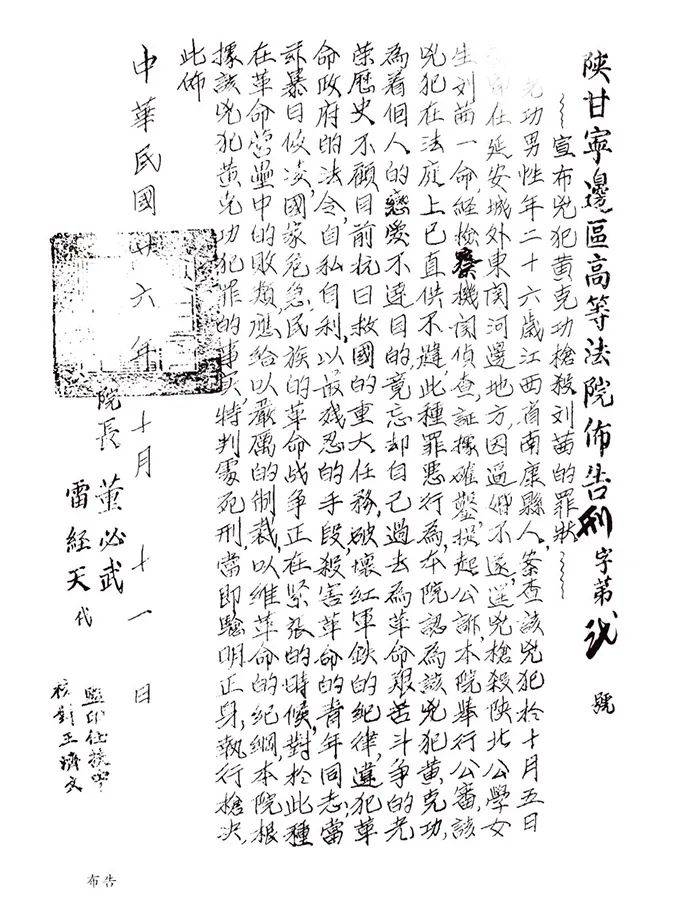 陕甘寧邊區高等法院佈告刑字第弍號
宣布兇犯黄克功槍殺刘茜的罪狀
克功男性年二十六歲江西省南康縣人，案查該兇犯於十月五日
在延安城外東関河邊地方，因逼婚不遂，逞兇槍殺陕北公學女
生刘茜一命，經檢察機関偵查証據確鑿，提起公訴，本院舉行公審，該
兇犯在法庭上已直供不諱，此種罪惡行為，本院認為該兇犯黄克功，
為着個人的戀愛不達目的，竟忘却自己過去為革命艰苦斗争的光
荣歷史不顧目前抗日救國的重大任務，破壞紅軍鉄的紀律，違犯革
命政府的法令，自私自利，以最残忍的手段，殺害革命的青年同志，當
茲暴日侵凌，國家危急，民族的革命战争正在緊張的時候，對於此種
在革命营壘中的敗類，應给以嚴厲的制裁，以维革命的紀綱，本院根
據該兇犯黄克功犯罪的事实，特判處死刑，當即驗明正身，執行槍决，
此佈
中華民國廿六年十月十一日
院長 董必武
雷經天 代
監印任扶中
核對王濟文
布告